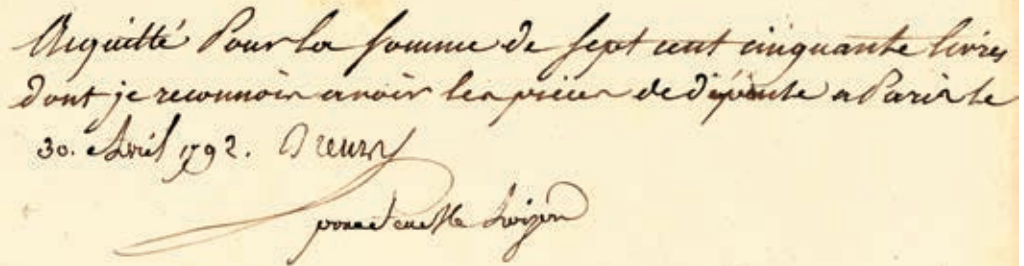 Acquitté Pour la somme de sept cent cinquante livres
dont je reconnois avoir les pieces de dépense a Paris le
30. Avril 1792.